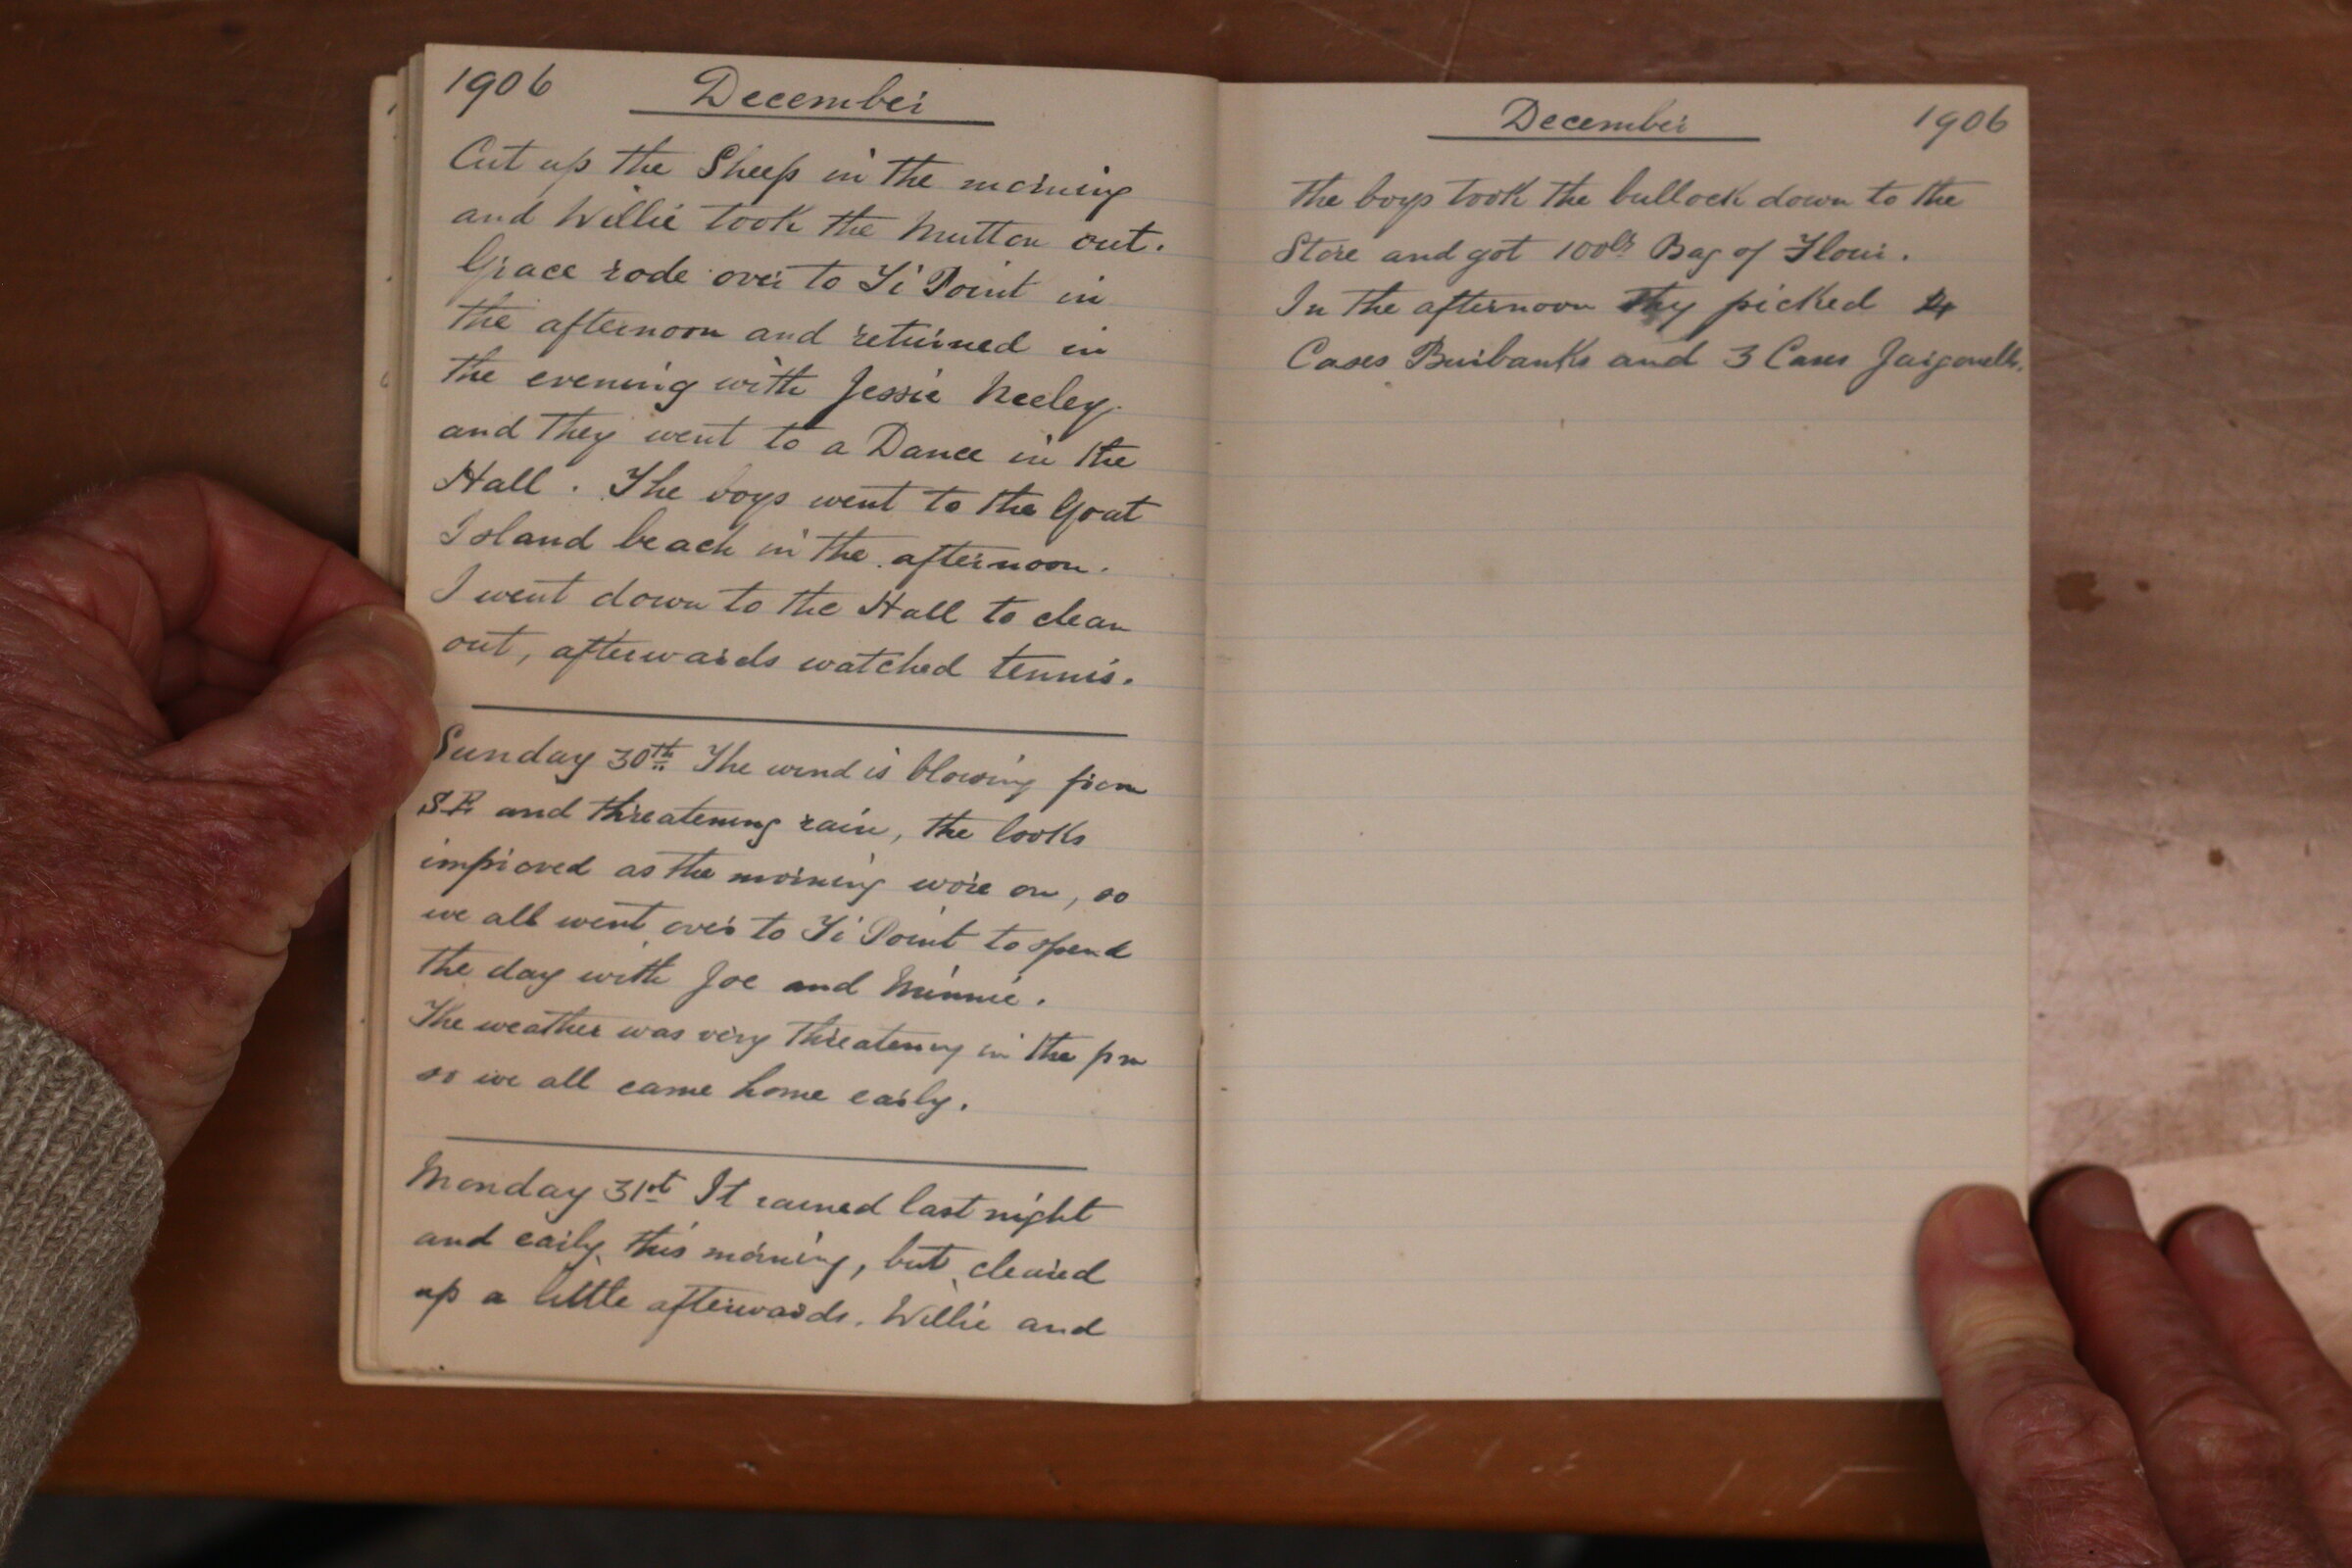 1906 December
Cut up the Sheep in the morning
and Willie took the Mutton out.
Grace rode over to Ti Point in
the afternoon and returned in
the evening with Jessie Neeley.
and they went to a Dance in the
Hall. The boys went to the Goat
Island beach in the afternoon.
I went down to the Hall to clean
out, afterwards watched tennis.
Sunday 30th The wind is blowing from
S.E. and threatening rain, the looks
improved as the morning wore on, so
we all went over to Ti Point to spend
the day with Joe and Minnie.
The weather was very threatening in the pm
so we all came home early.
Monday 31st It rained last night
and early this morning, but cleared
up a little afterwards. Willie and
December 1906
the boys took the bullock down to the
Store and got 100lb Bag of Flour.
In the afternoon they picked
Cases Burbanks and 3 Cases Jargonelle.